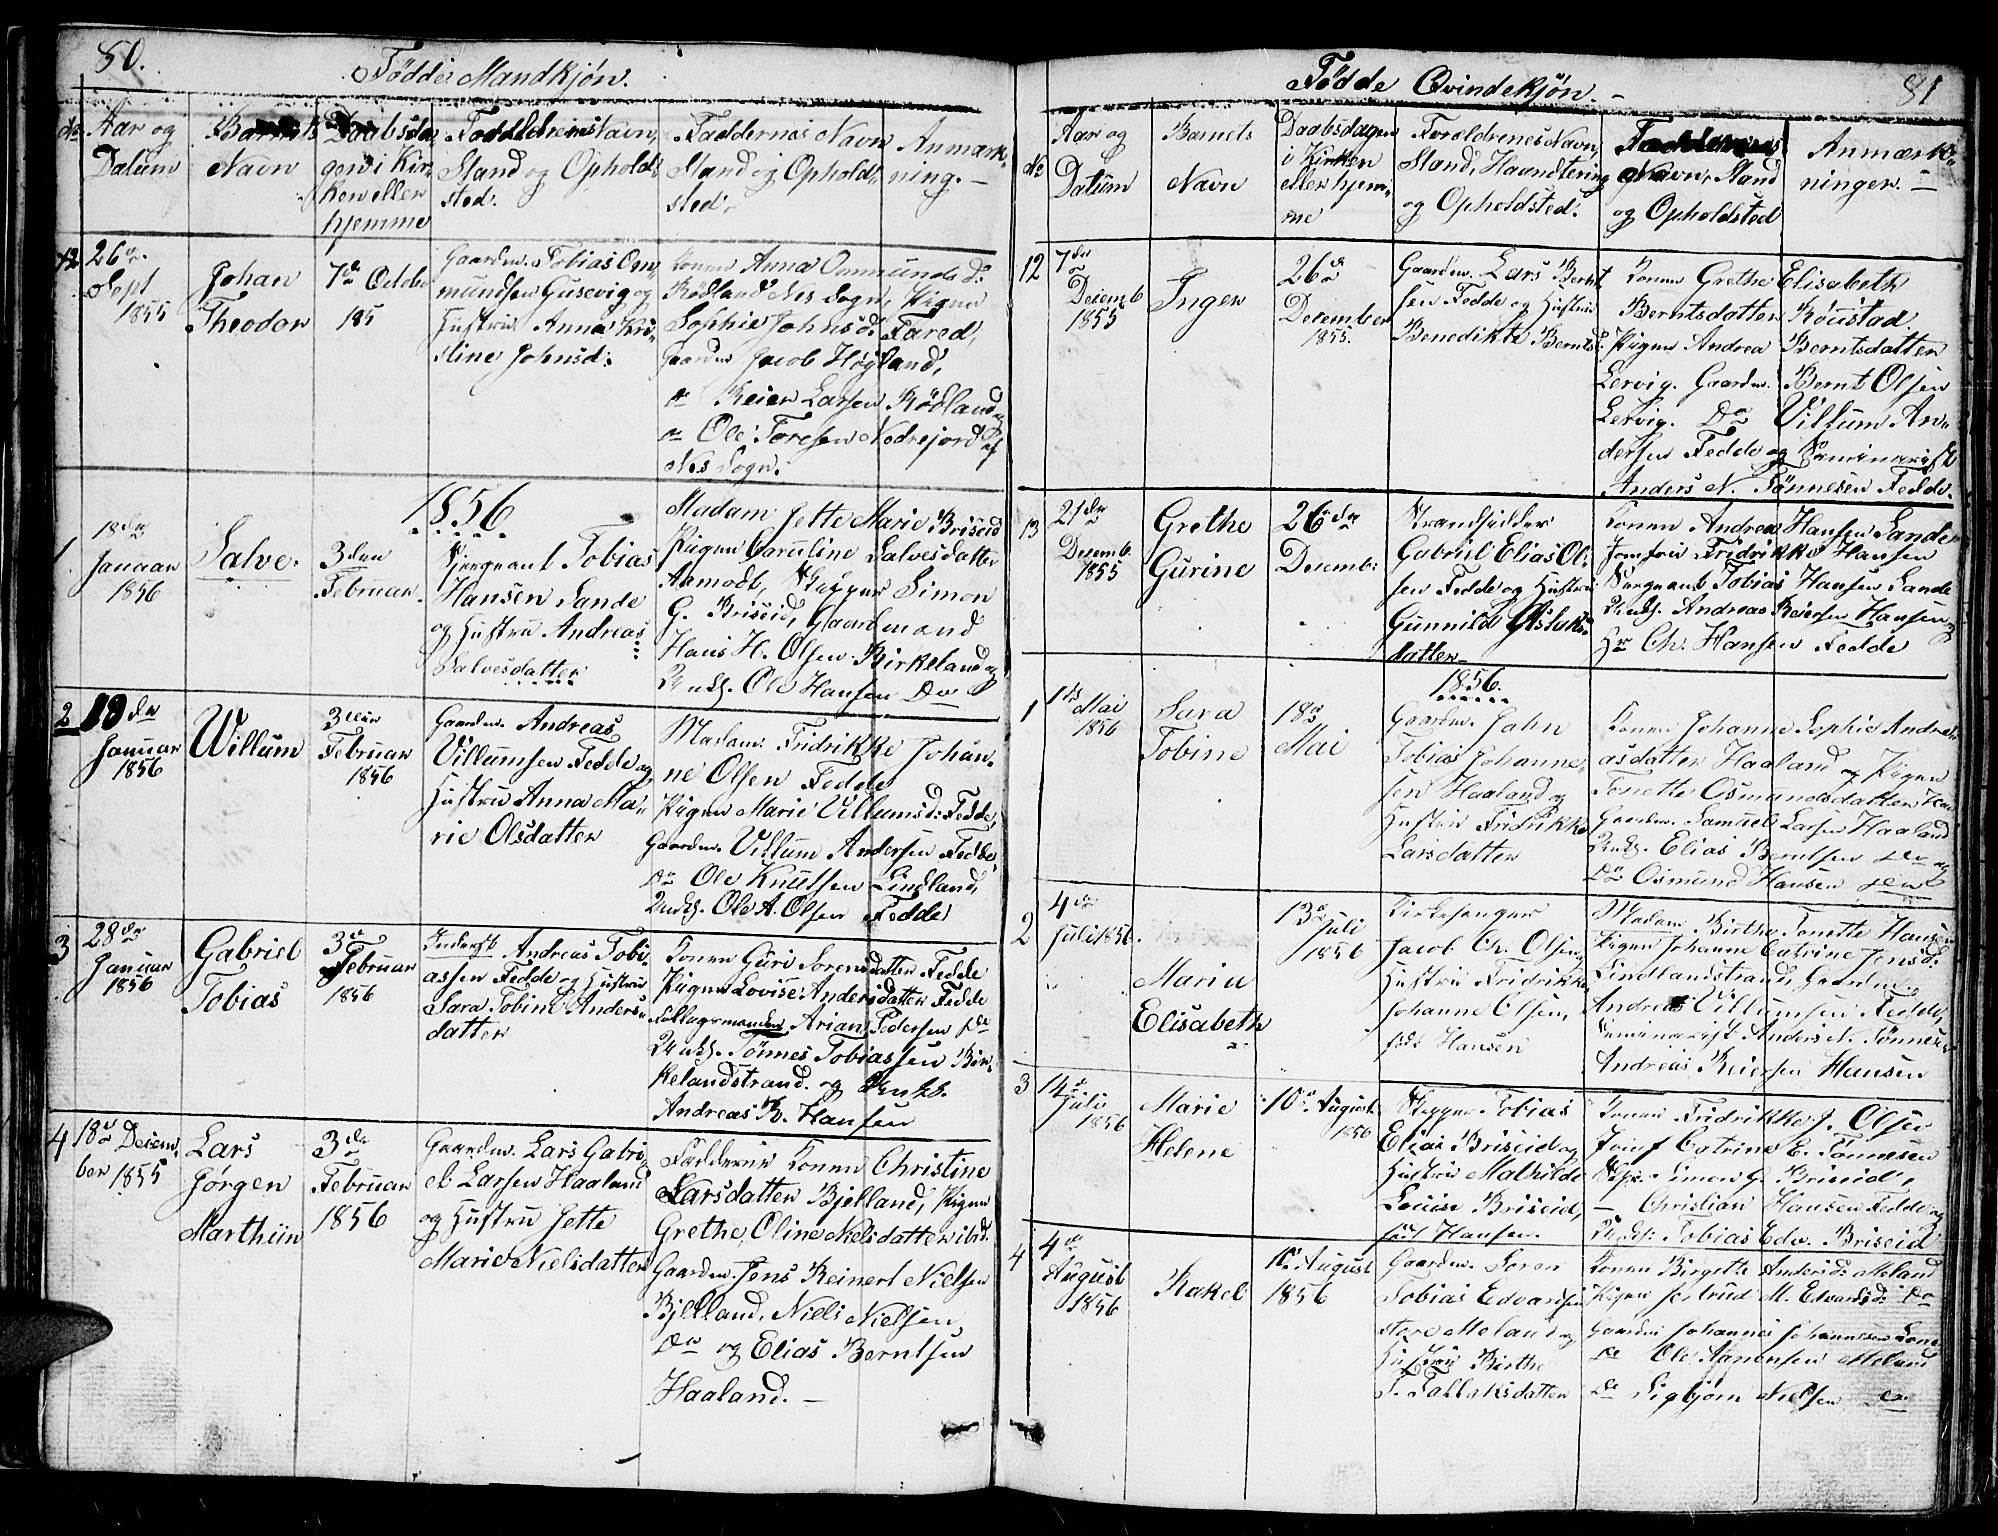 80.
Fødde Mandkjøn.
No
Aar og
Datum
Barnets
Navn
Daabsda
gen i Kir-
ken eller
hjemme
Forældrenes Navn,
Stand og Ophold-
sted.
Faddernes Navn
Stand og Ophold-
sted.
Anmærk-
ning. —
12
26de
Sept
1855
Johan
Theodor
7de October
185
Gaardm. Tobias Om-
mundsen Gusevig og
Hustru Anna Kri-
stine Johnsd:
Konen Anna Ommunds D:
Rödland Nis Sogn, Pigen
Sophie Johnsd. Fared,
Gaardm Jacob Høyland,
do Reier Larsen Rödland og
do Ole Toresen Nedrejord af
Nes Sogn.
1856
1.
18de
Januar
1856
Salve.
3den
Februar.
Sergeant Tobias
Hansen Sande
og Hustru Andreas
Salvesdatter
Madam Jette Marie Briseid
Pigen Caruline Salvesdatter
Aamodt, Skipper Simon
G. Briseid, Gaardmand
Hans H. Olsen Birkeland og
Unk. Ole Hansen Do
2
19de
Januar
1856
Willum
3den
Februar
1856
Gaardm. Andreas
Villumsen Fedde og
Hustru Anna Ma-
rie Olsdatter
Madam Fridrikke Johan-
ne Olsen Fedde
Pigen Marie Villumsd: Fedde,
Gaardm. Villum Andersen Fedde,
Do Ole Knutsen Lindland,
Unk. Ole A. Olsen Fedde
3
28de
Januar
1856
Gabriel
Tobias
3de
Februar
1856
Inderst Andreas Tobi-
assen Fedde og Hustru
Sara Tobine Anders-
datter
Konen Guri Sorensdatter Fedde
Pigen Lovise Andersdatter Fedde
Arian Pedersen Do
Unk. Tönnes Tobiassen Bir-
kelandstrand. og Unk.
Andreas R. Hansen
4
18de Decem
ber 1855
Lars
Jörgen
Marthin
3de
Februar
1856
Gaardm. Lars Gabri-
el Larsen Haaland
og Hustru Jette
Marie Nielsdatter
Fadderne Konen Christine
Larsdatter Bjelland, Pigen
Grethe Oline Nielsdatter ibid.
Gaardm. Jens Reinert Nielsen
Bjelland, Niels Nielsen,
Do og Elias Berntsen
Haaland. —
Fødde Qvindekjön. —
81
No
Aar og
Datum
Barnets
Navn
Daabsdagen
i Kirken
eller hjem-
me
Forældrenes Navn,
Stand, Haandtering
og Opholdsted.
Faddernes
Navn, Stand
og Opholdsted
Anmærk-
ninger. —
12
7de
Decemb
1855
Inger
26de
December
1855.
Gaardm. Lars Bernt
sen Fedde og Hustru
Benedikte Berntsd.
Konen Grethe Elisabeth
Berntsdatter Röustad
Pigen Andrea Berntsdatter
Lervig. Gaardm. Bernt Olsen
Lervig. Do Villum An-
dersen Fedde og Seminarist
Anders N. Tönnesen Fedde.
13
21de
Decemb.
1855
Grethe
Gurine
26de
Decemb:
Strandsidder
Gabriel Elias Ol-
sen Fedde og Hustru
Gunnild Aslaks-
datter
Konen Andrea Hansen Sande
Jomfru Fridrikke Hansen
Sergeant Tobias Hansen Sande
Unk. Andreas Reiersen Hansen og
Hr Ch. Hansen Fedde
1856.
1
1ste Mai
1856
Sara
Tobine
18de
Mai
Gaardm. John
Tobias Johanne-
sen Haaland og
Hustru Fridrikke
Larsdatter
Konen Johanne Sophie Andre-
asdatter Haaland og Pigen
Tonette Osmundsdatter
Gaardm. Samuel Larsen Haaland
Unk. Elias Berntsen Do og
Do Osmund Hansen
2
4de
Juli 1856.
Maria
Elisabeth
13de
Juli
1856
Kirkesanger
Jacob Ch. Olsen,
Hustru Fridrikke
Johanne Olsen,
föd Hansen
Madam Birthe Tonette Hansen
Pigen Johanne Catrine Jensd:
Lindlandstrand, Gaardm.
Andreas Villumsen Fedde,
Seminarist Anders N. Tönnesen
Andreas Reiersen Hansen
3
14de
Juli
1856
Marie
Helene
10de August
1856
Skipper Tobias
Elias Briseid og
Hustru Mathilde
Louise Briseid,
föd Hansen.
Konen Fridrikke J. Olsen
Jomf Catrine E. Tönnesen
Skpr. Simon G. Briseid,
— Christian Hansen Fedde og
Unk: Tobias Edv. Briseid
4
4de
August
1856
Rakel
10de August
1856
Gaardm. Soren
Tobias Edvardsen
store Meland og
Hustru Birthe
T. Tallaksdatter
Konen Birgethe Andersd: Meland
Pigen Jertrud M. Edvardsd: Do
Gaardm Johannes Johannessen
Do Ole Aanensen Meland
Do Sigbjörn Nielsen Do